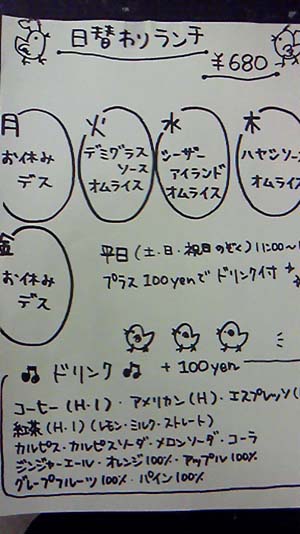 日替わりランチ
¥680
月
お休み
デス
火
デミグラス
ソース
オムライス
水
シーザー
アイランド
オムライス
木
ハヤシソース
オムライス
金
お休み
デス
平日(土・日・祝日のぞく)11:00~
プラス100yenでドリンク付
♫ ドリンク ♫ +100yen
コーヒー(H・I)・アメリカン(H)・エスプレッソ(
紅茶(H・I)(レモン・ミルク・ストレート)
カルピス・カルピスソーダ・メロンソーダ・コーラ
ジンジャーエール・オレンジ100%・アップル100%
グレープフルーツ100%・パイン100%